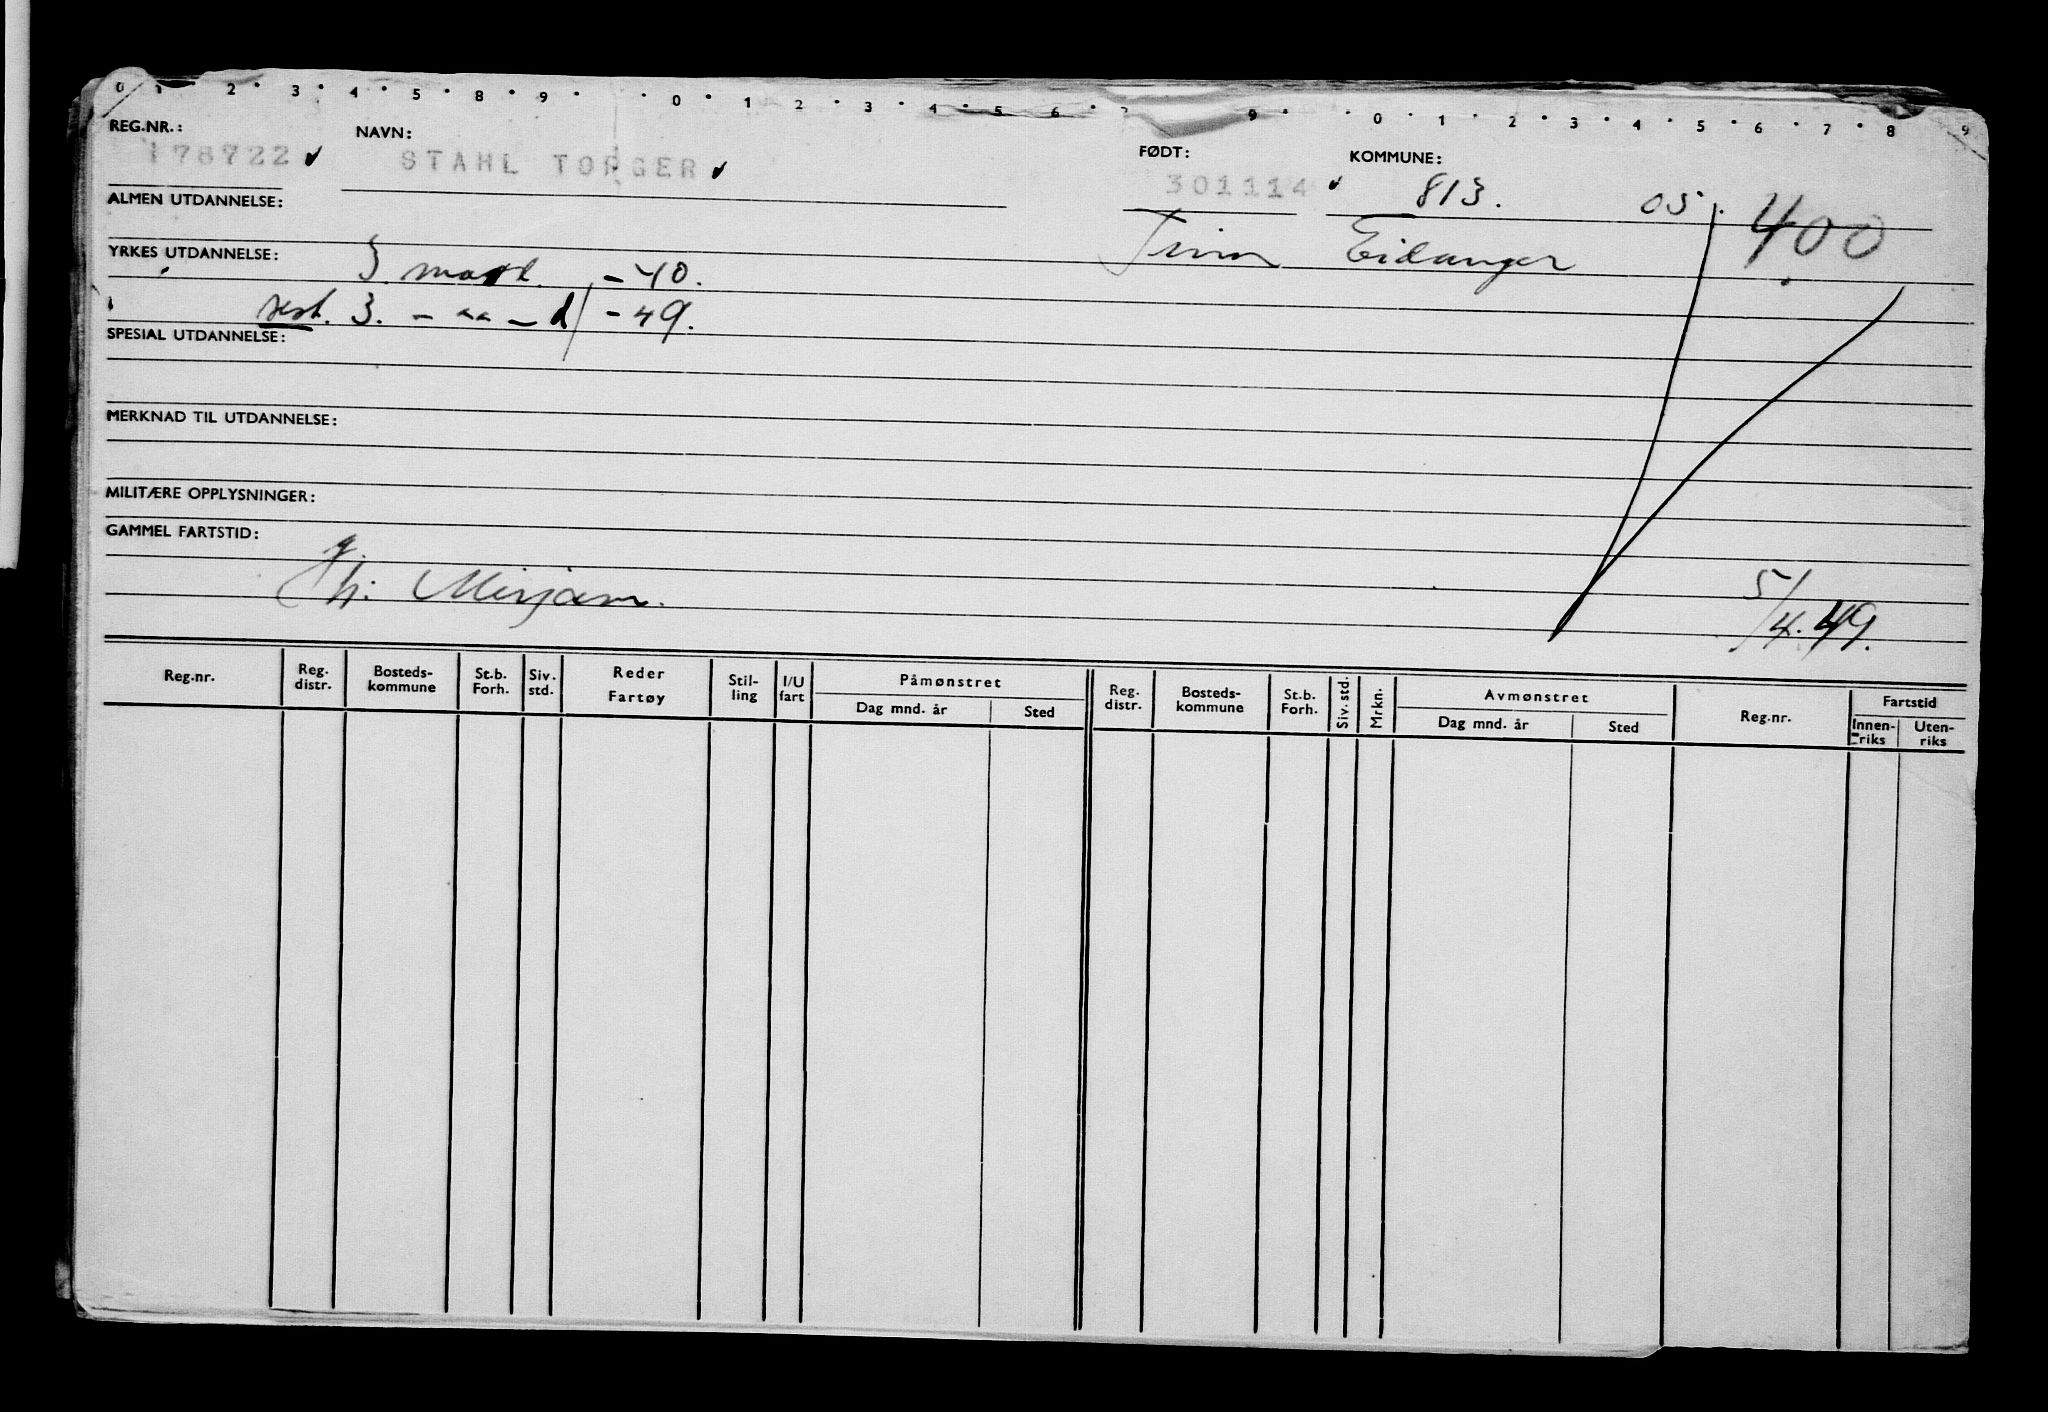 0 1 2 · 3 · 4 · 5 · 8 · 9 · · 0 · 1 2 · 3 · 4 · 5 · 6 · 7 9 · · 0 · 1 2 · 3 · 4 · 5 · 6 · 7 · 8 9
REG.NR.: NAVN: FØDT: KOMMUNE:
178722 ✓ STAHL TORGER ✓ 301114 ✓ 813. 05. 400
ALMEN UTDANNELSE:
Eidanger
YRKES UTDANNELSE: 3. mask. - 40.
3. - „ - d/ - 49.
SPESIAL UTDANNELSE:
MERKNAD TIL UTDANNELSE:
MILITÆRE OPPLYSNINGER:
GAMMEL FARTSTID:
g.
h: Mirjam. 5/4.49.
Reg.nr. Reg. distr. Bosteds-kommune St.b. Forh. Siv. std. Reder Fartøy Stil-ling I/U fart Påmønstret Dag mnd. år Sted Reg. distr. Bosteds-kommune St.b. Forh. Siv. std. Mrkn. Avmønstret Dag mnd. år Sted Reg.nr. Fartstid Innen-riks Uten-riks